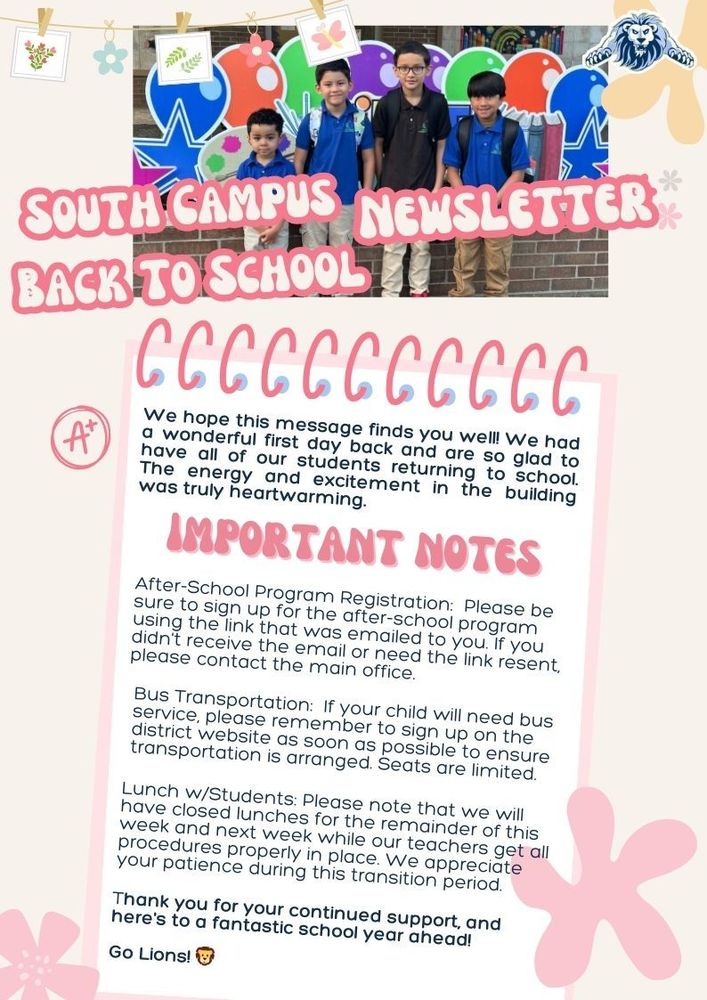 SOUTH CAMPUS NEWSLETTER
BACK TO SCHOOL
A+
We hope this message finds you well! We had
a wonderful first day back and are so glad to
have all of our students returning to school.
The energy and excitement in the building
was truly heartwarming.
IMPORTANT NOTES
After-School Program Registration: Please be
sure to sign up for the after-school program
using the link that was emailed to you. If you
didn't receive the email or need the link resent,
please contact the main office.
Bus Transportation: If your child will need bus
service, please remember to sign up on the
district website as soon as possible to ensure
transportation is arranged. Seats are limited.
Lunch w/Students: Please note that we will
have closed lunches for the remainder of this
week and next week while our teachers get all
procedures properly in place. We appreciate
your patience during this transition period.
Thank you for your continued support, and
here's to a fantastic school year ahead!
Go Lions! 🦁